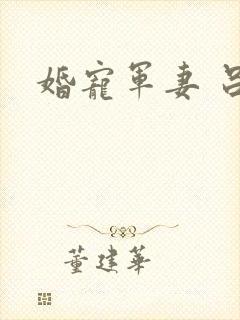 婚寵軍妻
董建華